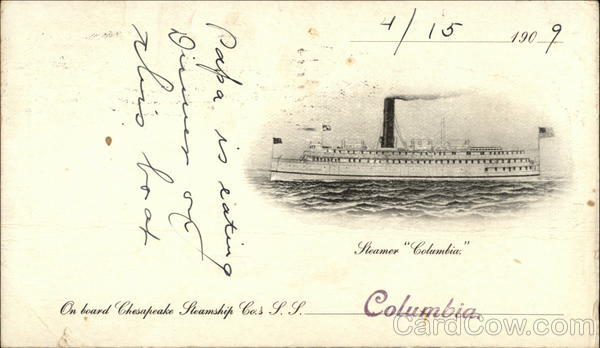 4/15 1909
Papa is eating
Dinner on
this boat
Steamer "Columbia."
On board Chesapeake Steamship Co.'s S. S. Columbia.
CardCow.com